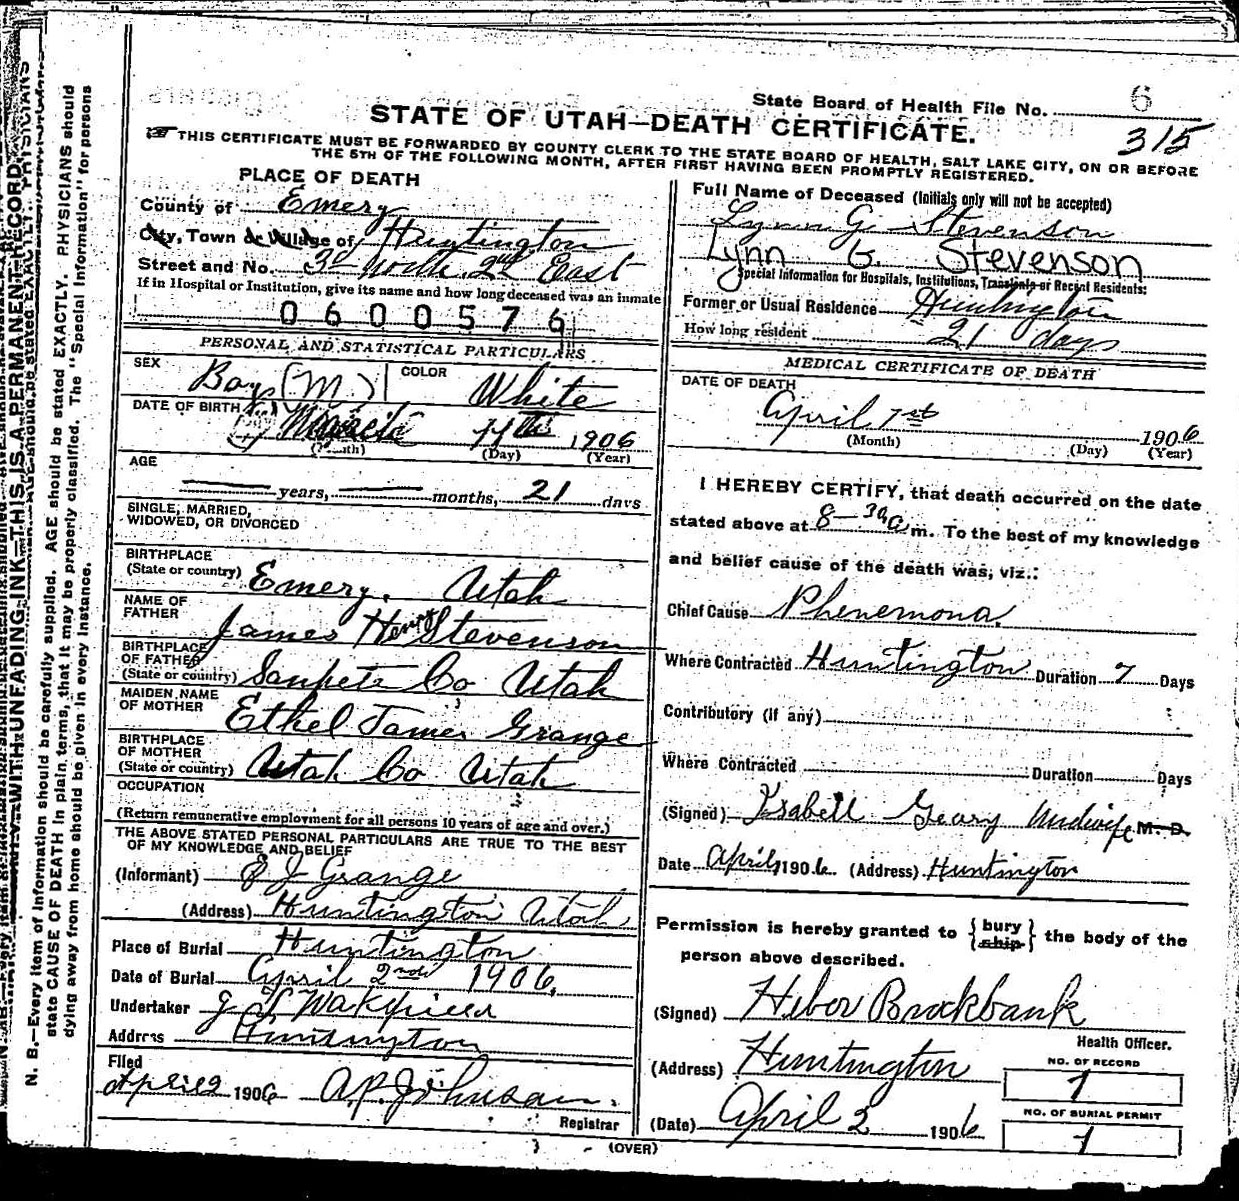 State Board of Health File No. 6
315
STATE OF UTAH—DEATH CERTIFICATE.
THIS CERTIFICATE MUST BE FORWARDED BY COUNTY CLERK TO THE STATE BOARD OF HEALTH, SALT LAKE CITY, ON OR BEFORE
THE 5TH OF THE FOLLOWING MONTH, AFTER FIRST HAVING BEEN PROMPTLY REGISTERED.
PLACE OF DEATH
County of Emery
City, Town or Village of Huntington
Street and No. 3d North 2nd East
If in Hospital or Institution, give its name and how long deceased was an inmate
0600576
PERSONAL AND STATISTICAL PARTICULARS
SEX Boy (M) COLOR White
DATE OF BIRTH March 11th 1906
(Month) (Day) (Year)
AGE
years, months, 21 days
SINGLE, MARRIED,
WIDOWED, OR DIVORCED
BIRTHPLACE
(State or country) Emery, Utah
NAME OF
FATHER James Henry Stevenson
BIRTHPLACE
OF FATHER
(State or country) Sanpete Co Utah
MAIDEN NAME
OF MOTHER Ethel James Grange
BIRTHPLACE
OF MOTHER
(State or country) Utah Co Utah
OCCUPATION
(Return remunerative employment for all persons 10 years of age and over.)
THE ABOVE STATED PERSONAL PARTICULARS ARE TRUE TO THE BEST
OF MY KNOWLEDGE AND BELIEF
(Informant) E J Grange
(Address) Huntington Utah
Place of Burial Huntington
Date of Burial April 2nd 1906.
Undertaker Wakefield
Address Huntington
Filed
April 2 1906 A.P. Johnson.
Registrar
Full Name of Deceased (Initials only will not be accepted)
Lynn G Stevenson
Lynn G. Stevenson
Special Information for Hospitals, Institutions, Transients or Recent Residents:
Former or Usual Residence Huntington
How long resident 21 days
MEDICAL CERTIFICATE OF DEATH
DATE OF DEATH
April 1st 1906
(Month) (Day) (Year)
I HEREBY CERTIFY, that death occurred on the date
stated above at 8-30 a m. To the best of my knowledge
and belief cause of the death was, viz.:
Chief Cause Phenemona.
Where Contracted Huntington Duration 7 Days
Contributory (if any)
Where Contracted Duration Days
(Signed) Isabell Geary Midwife M. D.
Date April 1906. (Address) Huntington
Permission is hereby granted to { bury ship } the body of the
person above described.
(Signed) Heber Brockbank
Health Officer.
(Address) Huntington
NO. OF RECORD
1
(Date) April 2 1906.
NO. OF BURIAL PERMIT
1
(OVER)
N. B.—Every item of information should be carefully supplied. AGE should be stated EXACTLY. PHYSICIANS should
state CAUSE OF DEATH in plain terms, that it may be properly classified. The "Special Information" for persons
dying away from home should be given in every instance.
WITH UNFADING INK—THIS IS A PERMANENT RECORD.